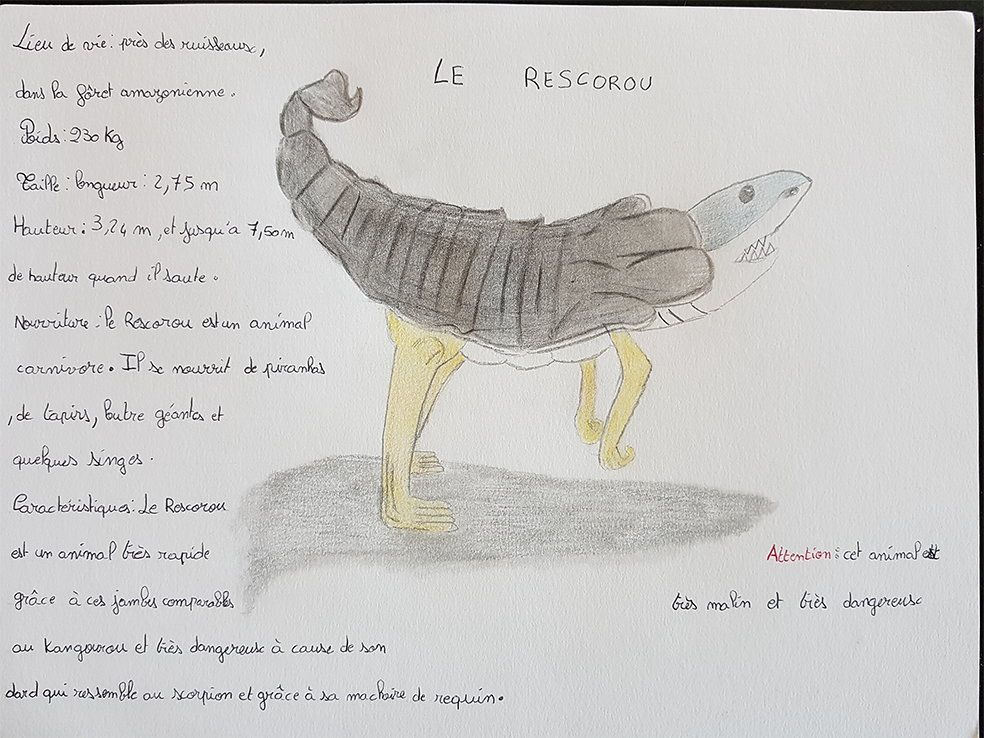 LE RESCOROU
Lieu de vie : près des ruisseaux,
dans la fôret amazonienne.
Poids : 230 Kg
Taille : longueur : 2,75 m
Hauteur : 3,24 m, et jusqu'a 7,50 m
de hauteur quand il saute.
Nourriture : le Rescorou est un animal
carnivore. Il se nourrit de piranhas
, de tapirs, loutre géantes et
quelques singes.
Caractéristiques : Le Rescorou
est un animal très rapide
grâce à ces jambes comparables
au Kangourou et très dangereux à cause de son
dard qui ressemble au scorpion et grâce à sa machoire de requin.
Attention : cet animal est
très malin et très dangereux